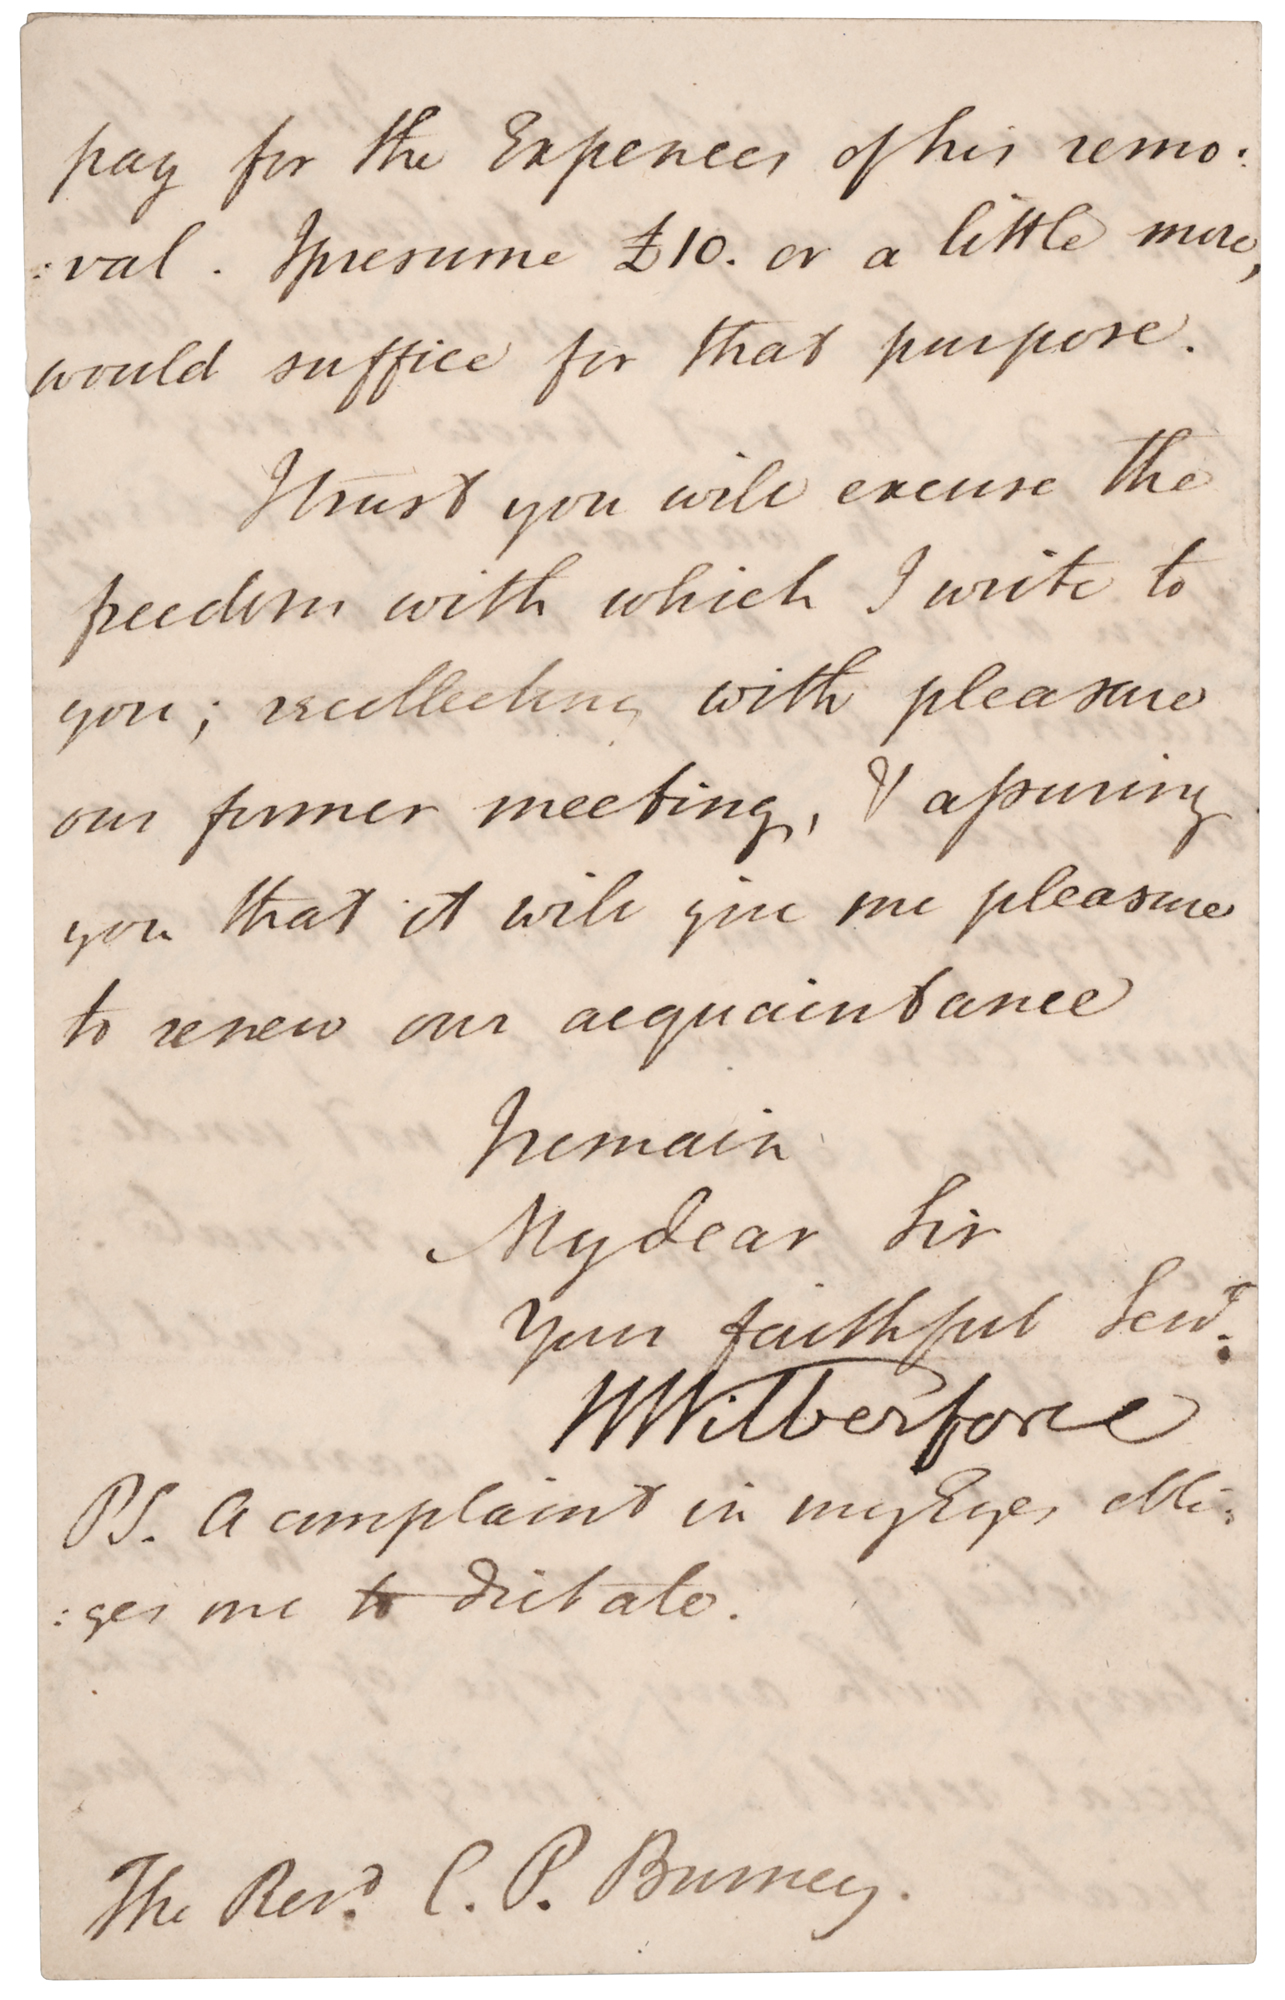 pay for the Expences of his remo:
:val. I presume £10. or a little more,
would suffice for that purpose.
I trust you will excuse the
freedom with which I write to
you; recollecting with pleasure
our former meeting, & assuring
you that it will give me pleasure
to renew our acquaintance
I remain
My dear Sir
Your faithful Servt.
W Wilberforce
PS. A complaint in my Eyes obli:
:ges me to dictate.
The Revd. C. P. Burney.